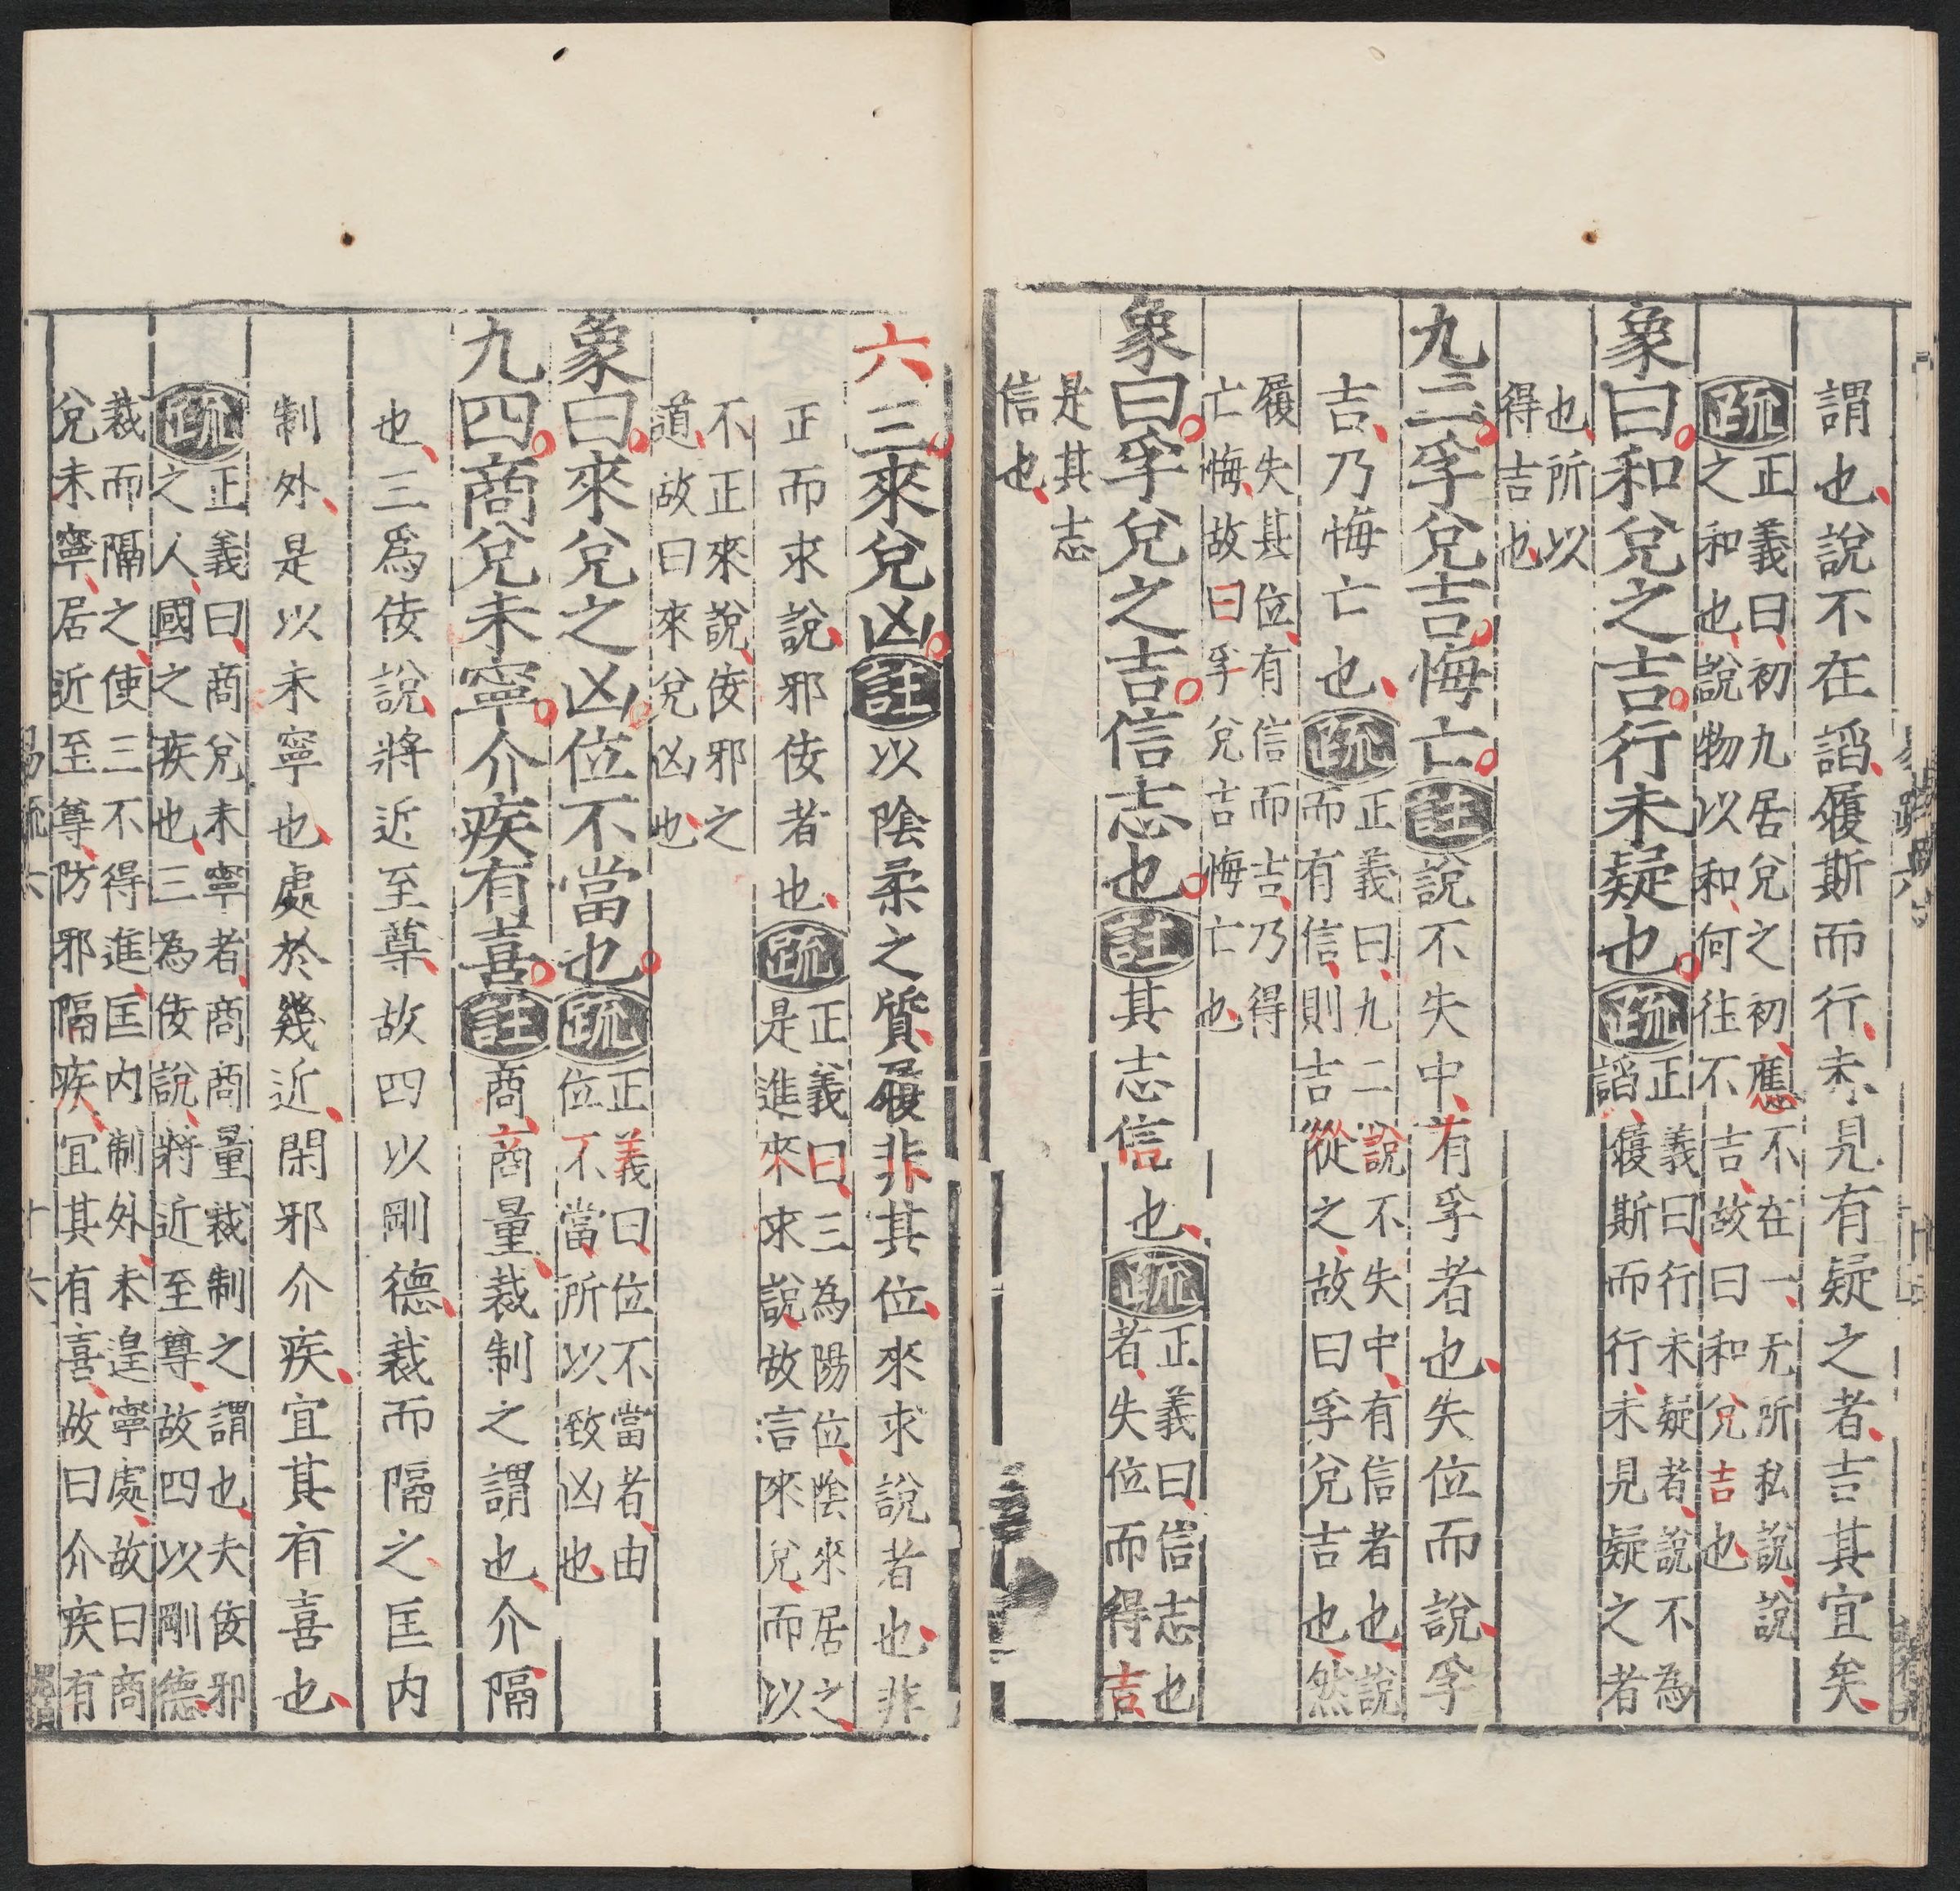 謂也說不在諂履斯而行未見有疑之者吉其宜矣
疏正義曰初九居兌之初應不在一无所私說說
之和也說物以和何往不吉故曰和兌吉也
象曰和兌之吉行未疑也疏正義曰行未疑者說不為
諂履斯而行未見疑之者
也所以
得吉也
九二孚兌吉悔亡註說不失中有孚者也失位而說孚
吉乃悔亡也疏正義曰九二說不失中有信者也說
而有信則吉從之故曰孚兌吉也然
履失其位有信而吉乃得
亡悔故曰孚兌吉悔亡也
象曰孚兌之吉信志也註其志信也疏正義曰信志也
者失位而得吉
是其志
信也
六三來兌凶註以陰柔之質履非其位來求說者也非
正而求說邪佞者也疏正義曰三為陽位陰來居之
是進來求說故言來兌而以
不正來說佞邪之
道故曰來兌凶也
象曰來兌之凶位不當也疏正義曰位不當者由
位不當所以致凶也
九四商兌未寧介疾有喜註商商量裁制之謂也介隔
也三爲佞說將近至尊故四以剛德裁而隔之匡内
制外是以未寧也處於幾近閑邪介疾宜其有喜也
疏正義曰商兌未寧者商商量裁制之謂也夫佞邪
之人國之疾也三為佞說將近至尊故四以剛德
裁而隔之使三不得進匡内制外未遑寧處故曰商
兌未寧居近至尊防邪隔疾宜其有喜故曰介疾有